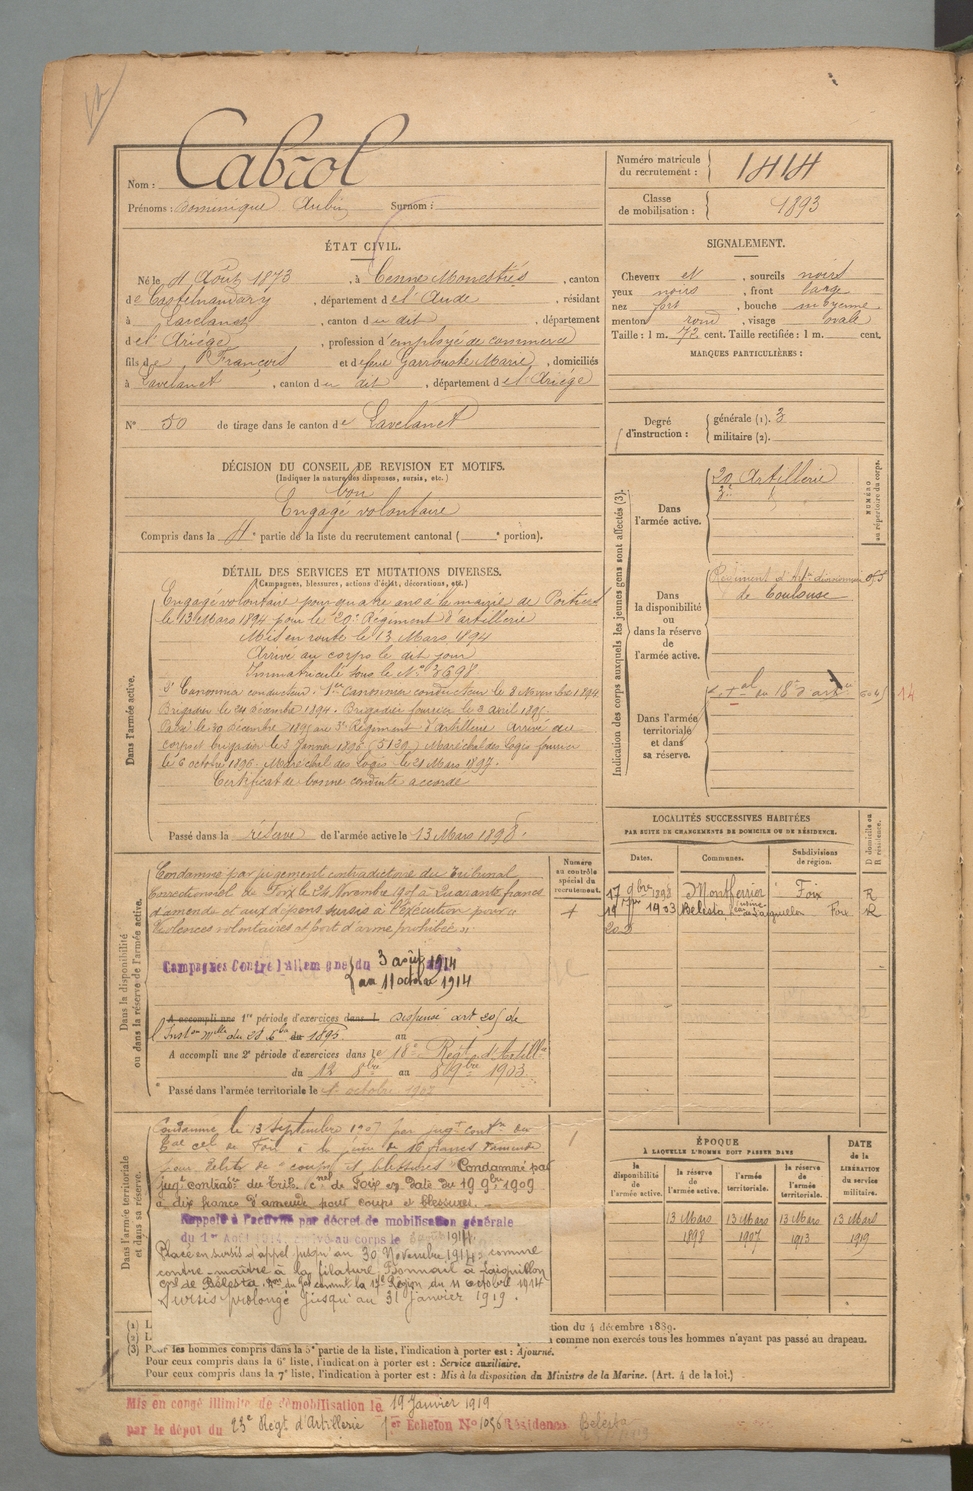 Nom : Cabrol
Prénoms : Dominique Aubin Surnom :
Numéro matricule
du recrutement : 1414
Classe
de mobilisation : 1893
ÉTAT CIVIL.
Né le 4 Août 1873, à Cenne Monestiés, canton
de Castelnaudary, département de l'Aude, résidant
à Lavelanet, canton du dit, département
de l'Ariège, profession d'employé de commerce
fils de François et de feue Garrouste Marie, domiciliés
à Lavelanet, canton du dit, département de l'Ariège
N° 50 de tirage dans le canton de Lavelanet
SIGNALEMENT.
Cheveux et, sourcils noirs
yeux noirs, front large
nez fort, bouche moyenne
menton rond, visage ovale
Taille : 1 m. 72 cent. Taille rectifiée : 1 m. cent.
MARQUES PARTICULIÈRES :
Degré
d'instruction :
générale (1). 3
militaire (2).
DÉCISION DU CONSEIL DE REVISION ET MOTIFS.
(Indiquer la nature des dispenses, sursis, etc.)
bon
Engagé volontaire
Compris dans la 4e partie de la liste du recrutement cantonal ( e portion).
DÉTAIL DES SERVICES ET MUTATIONS DIVERSES.
(Campagnes, blessures, actions d'éclat, décorations, etc.)
Dans l'armée active.
Engagé volontaire pour quatre ans à la mairie de Poitiers
le 13 Mars 1894 pour le 20e Régiment d'artillerie
Mis en route le 13 Mars 1894
Arrivé au corps le dit jour
Immatriculé sous le N° 3698
2e Canonnier conducteur. 1er Canonnier conducteur le 8 Novembre 1894
Brigadier le 24 Décembre 1894. Brigadier fourrier le 3 avril 1895.
Passé le 30 décembre 1895 au 3e Régiment d'artillerie. Arrivé au
corps et brigadier le 3 Janvier 1896 Maréchal des logis fourrier
le 6 octobre 1896. Maréchal des Logis le 21 Mars 1897.
Certificat de bonne conduite accordé
Passé dans la réserve de l'armée active le 13 Mars 1898.
Indication des corps auxquels les jeunes gens sont affectés (3).
NUMÉRO
au répertoire du corps.
Dans
l'armée active.
20 Artillerie
3e
Dans
la disponibilité
ou
dans la réserve
de
l'armée active.
Régiment d'Art. divisionnaire
de Toulouse
Dans l'armée
territoriale
et dans
sa réserve.
14
LOCALITÉS SUCCESSIVES HABITÉES
PAR SUITE DE CHANGEMENTS DE DOMICILE OU DE RÉSIDENCE.
D domicile ou
R résidence.
Dates. Communes. Subdivisions
de région.
17 9bre 1898 Montferrier Foix R
19 1903 Bélesta Foix R
Dans la disponibilité
ou dans la réserve de l'armée active.
Numéro
au contrôle
spécial du
recrutement.
Condamné par jugement contradictoire du Tribunal
Correctionnel de Foix le 24 Novembre 1905 à Quarante francs
d'amende et aux dépens, sursis à l'exécution pour «
Violences volontaires et port d'arme prohibée »
Campagnes Contre l'Allemagne du 3 août 1914
au 11 octobre 1914
A accompli une 1re période d'exercices dans l Dispensé art 205 de
l'Inston Mlle du 28 Xbre 1895. au
A accompli une 2e période d'exercices dans le 18e Regt d'Artillie
du 12 8bre au 8 9bre 1903
Passé dans l'armée territoriale le 1er octobre 1907
Dans l'armée territoriale
et dans sa réserve.
Condamné le 13 septembre 1907 par jugt contre du
de Foix à la peine de 16 francs d'amende
pour délits de coups et blessures Condamné par
jugt contradre du Trib. cnel de Foix en date du 19 9bre 1909
à dix francs d'amende pour coups et blessures.
Rappelé à l'activité par décret de mobilisation générale
du 1er Août 1914. Arrivé au corps le 1914.
Placé en sursis d'appel jusqu'au 30 Novembre 1914 comme
contre-maître à la filature Bonnail à l'aiguillon
cne de Bélesta. du Gal commt la 17e Région du 11 octobre 1914
Sursis prolongé jusqu'au 31 janvier 1919.
ÉPOQUE
À LAQUELLE L'HOMME DOIT PASSER DANS
DATE
de la
LIBÉRATION
du service
militaire.
la
disponibilité
de
l'armée active.
la réserve
de
l'armée active.
l'armée
territoriale.
la réserve
de
l'armée
territoriale.
13 Mars 1898
13 Mars 1907
13 Mars 1913
13 Mars 1919
(1) L
tion du 4 décembre 1889.
(2) L
comme non exercés tous les hommes n'ayant pas passé au drapeau.
(3) Pour les hommes compris dans la 5e partie de la liste, l'indication à porter est : Ajourné.
Pour ceux compris dans la 6e liste, l'indication à porter est : Service auxiliaire.
Pour ceux compris dans la 7e liste, l'indication à porter est : Mis à la disposition du Ministre de la Marine. (Art. 4 de la loi.)
Mis en congé illimité de démobilisation le 19 Janvier 1919
par le dépôt du 23e Régt d'Artillerie 1er Échelon N° 1056 Résidence Bélesta